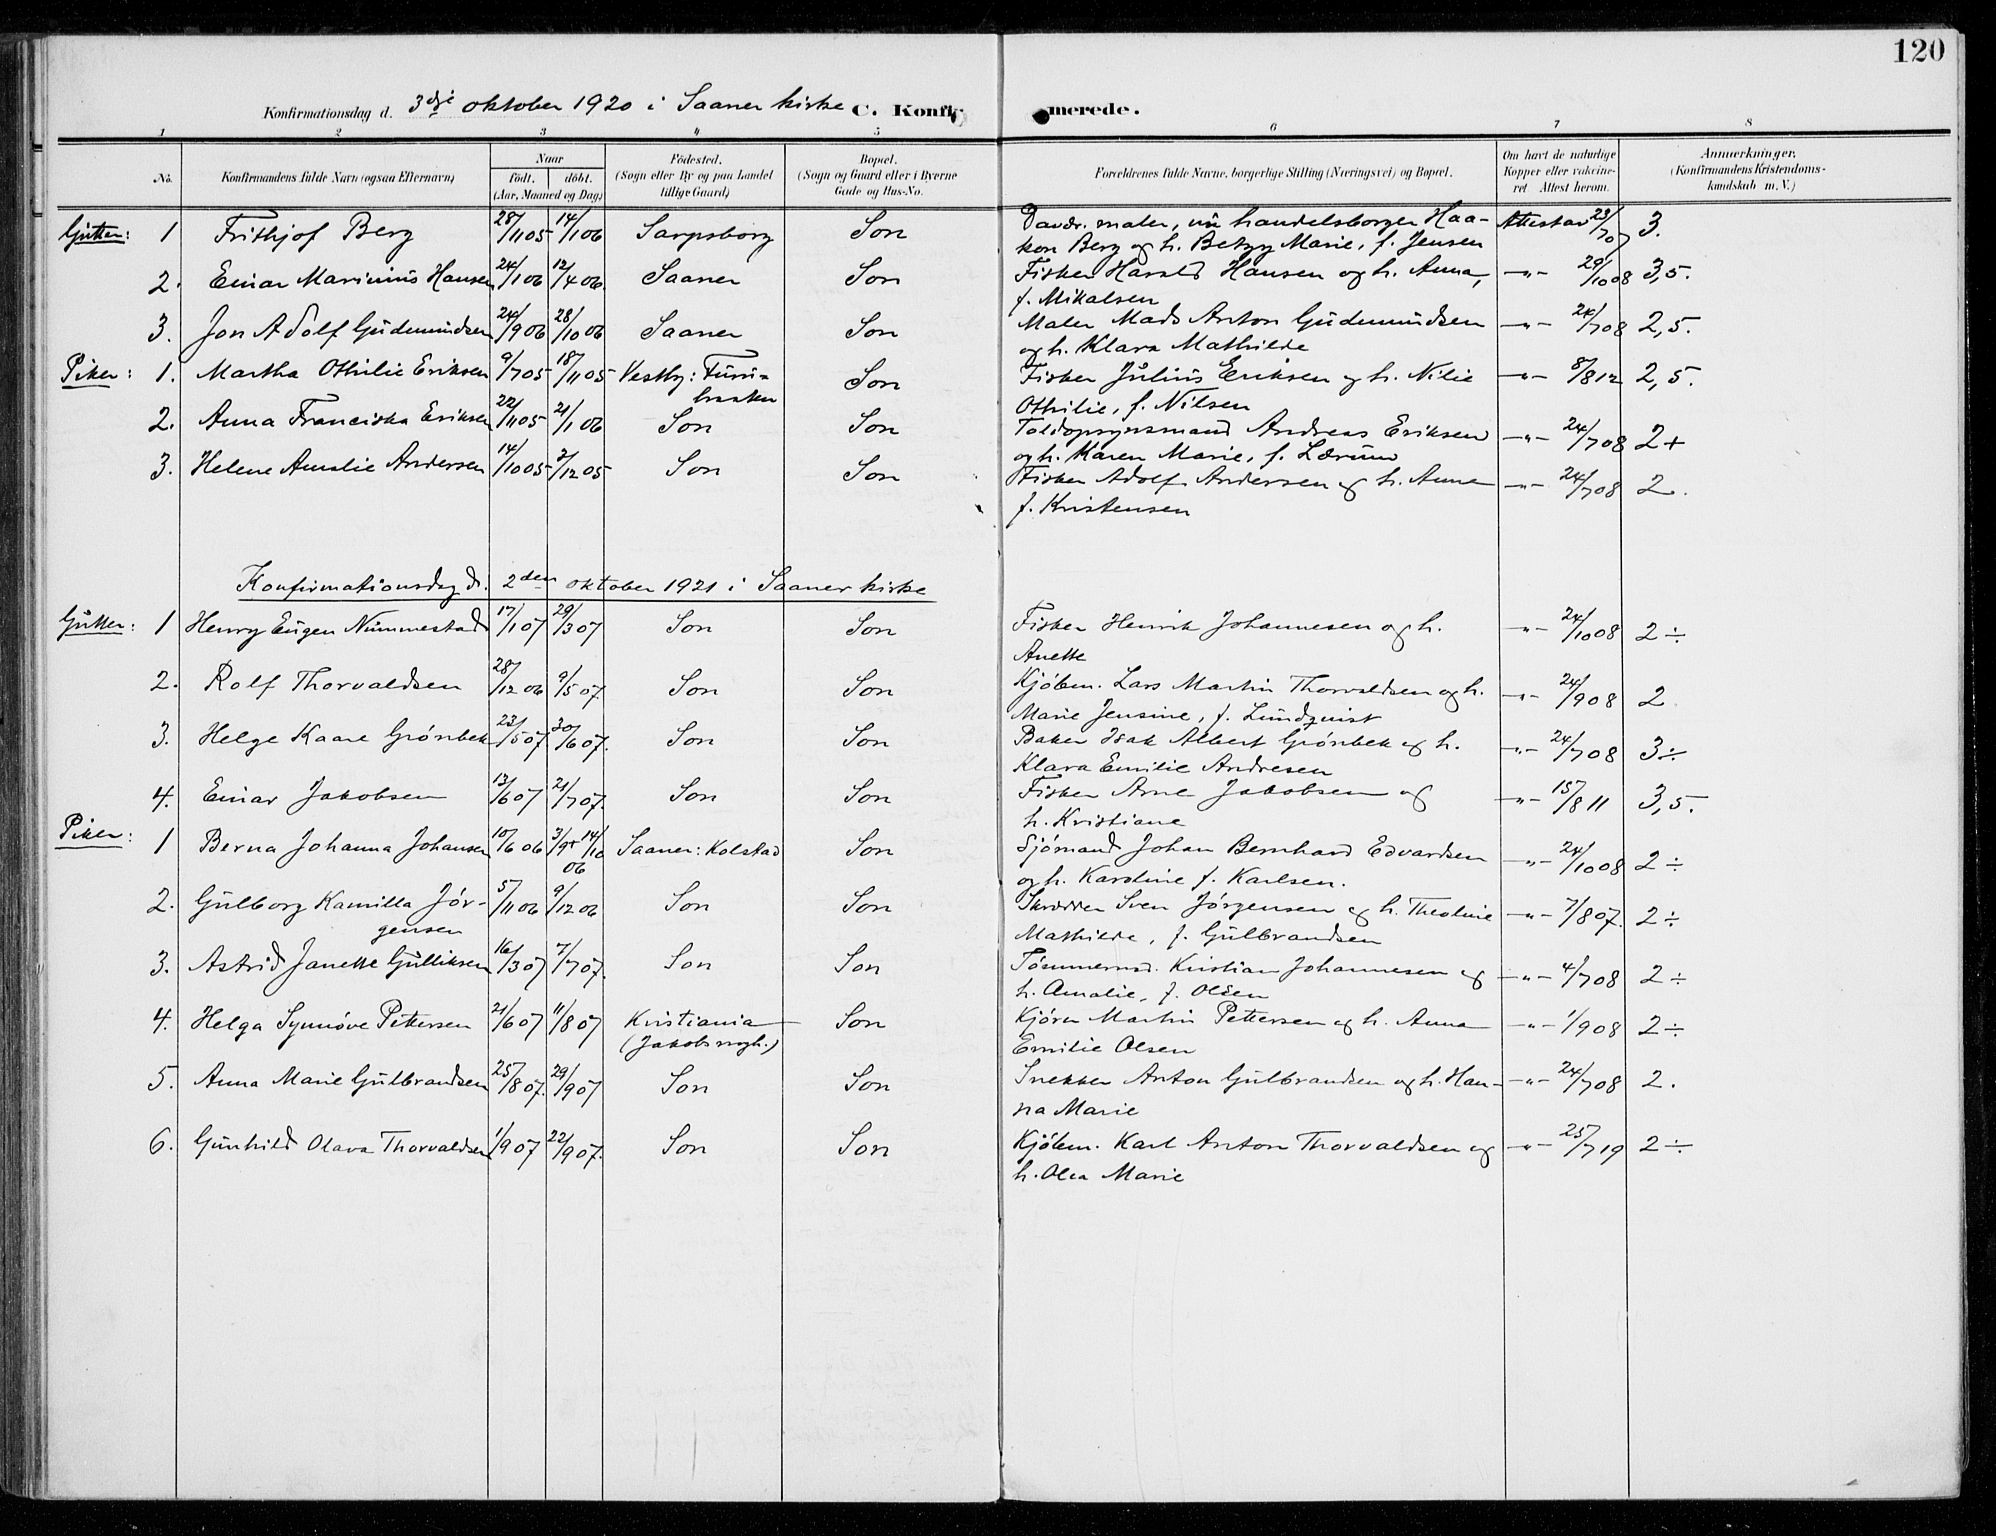 120
Konfirmationsdag d. 3dje oktober 1920 i Saaner kirke C. Konfirmerede.
1 2 3 4 5 6 7 8
No. Konfirmandens fulde Navn (ogsaa Efternavn) Naar födt. döbt. (Aar, Maaned og Dag) Födested. (Sogn eller By og paa Landet tillige Gaard) Bopæl. (Sogn og Gaard eller i Byerne Gade og Hus-No. Forældrenes fulde Navne, borgerlige Stilling (Næringsvei) og Bopæl. Om havt de naturlige Kopper eller vakcineret Attest herom. Anmærkninger. (Konfirmandens Kristendomskundskab m. V.)
Gutter: 1 Frithjof Berg 28/11 05 14/1 06 Sarpsborg Son maler, nu handelsborger Haa- Attestav 23/7 07 3.
kon Berg og h. Betzy Marie, f. Jensen
2. Einar Marinius Hansen 24/1 06 12/4 06. Saaner Son Fisker Harald Hansen og h. Anna, -"- 29/10 08 3,5.
f. Mikalsen
3. Jon Adolf Gudmundsen 24/9 06 28/10 06 Saaner Son Maler Mads Anton Gudmundsen -"- 24/7 08 2,5.
og h. Klara Mathilde
Piker: 1. Martha Othilie Eriksen 9/7 05 18/11 05 Vestby: Furu- Son Fisker Julius Eriksen og h. Nilie -"- 8/8 12 2,5.
Othilie, f. Nilsen
2. Anna Franciska Eriksen 22/11 05 21/1 06 Son Son Toldopsynsmand Andreas Eriksen -"- 24/7 08 2+
og h. Karen Marie, f. Lærum
3. Helene Amalie Andersen 14/10 05 3/12 05 Son Son Fisker Adolf Andersen og h. Anna -"- 24/7 08 2.
f. Kristensen
Konfirmationsdag d. 2den oktober 1921 i Saaner kirke
Gutter: 1 Henry Eugen Nummestad 17/1 07 29/3 07 Son Son Fisker Henrik Johannesen og h. -"- 24/10 08 2÷
Anette
2. Rolf Thorvaldsen 28/12 06 9/5 07. Son Son Kjøbm. Lars Martin Thorvaldsen og h. -"- 24/9 08 2
Marie Jensine, f. Lundquist
3. Helge Kaare Grönbek 23/5 07 30/6 07. Son Son Baker Isak Albert Grönbek og h. -"- 24/7 08 3÷
Klara Emilie Andresen
4. Einar Jakobsen 13/6 07 21/7 07. Son Son Fisker Arne Jakobsen og -"- 15/8 11 3,5.
h. Kristiane
Piker: 1 Berna Johanna Johansen 10/6 06 3/9 + 14/10 06 Saaner: Kolstad Son Sjømand Johan Bernhard Edvardsen -"- 24/10 08 2÷
og h. Karoline f. Karlsen.
2. Gulborg Kamilla Jör- 5/11 06 9/12 06 Son Son Skrædder Sven Jörgensen og h. Theoline -"- 7/8 07. 2÷
gensen Mathilde, f. Gulbrandsen
3. Astrid Janette Gulliksen 16/3 07 7/7 07. Son Son Tömmermd. Kristian Johannesen og -"- 4/7 08 2÷
h. Amalie, f. Olsen
4. Helga Synnöve Pettersen 21/6 07 11/8 07 Kristiania Son Kjörer Martin Pettersen og h. Anna -"- 1/9 08 2÷
(Jakobs mgh.) Emilie Olsen
5. Anna Marie Gulbrandsen 25/8 07. 29/9 07 Son Son Snekker Anton Gulbrandsen og h. Han- -"- 24/7 08 2.
na Marie
6. Gunhild Olava Thorvaldsen 1/9 07 22/9 07. Son Son Kjøbm. Karl Anton Thorvaldsen og -"- 25/7 19 2÷
h. Olea Marie